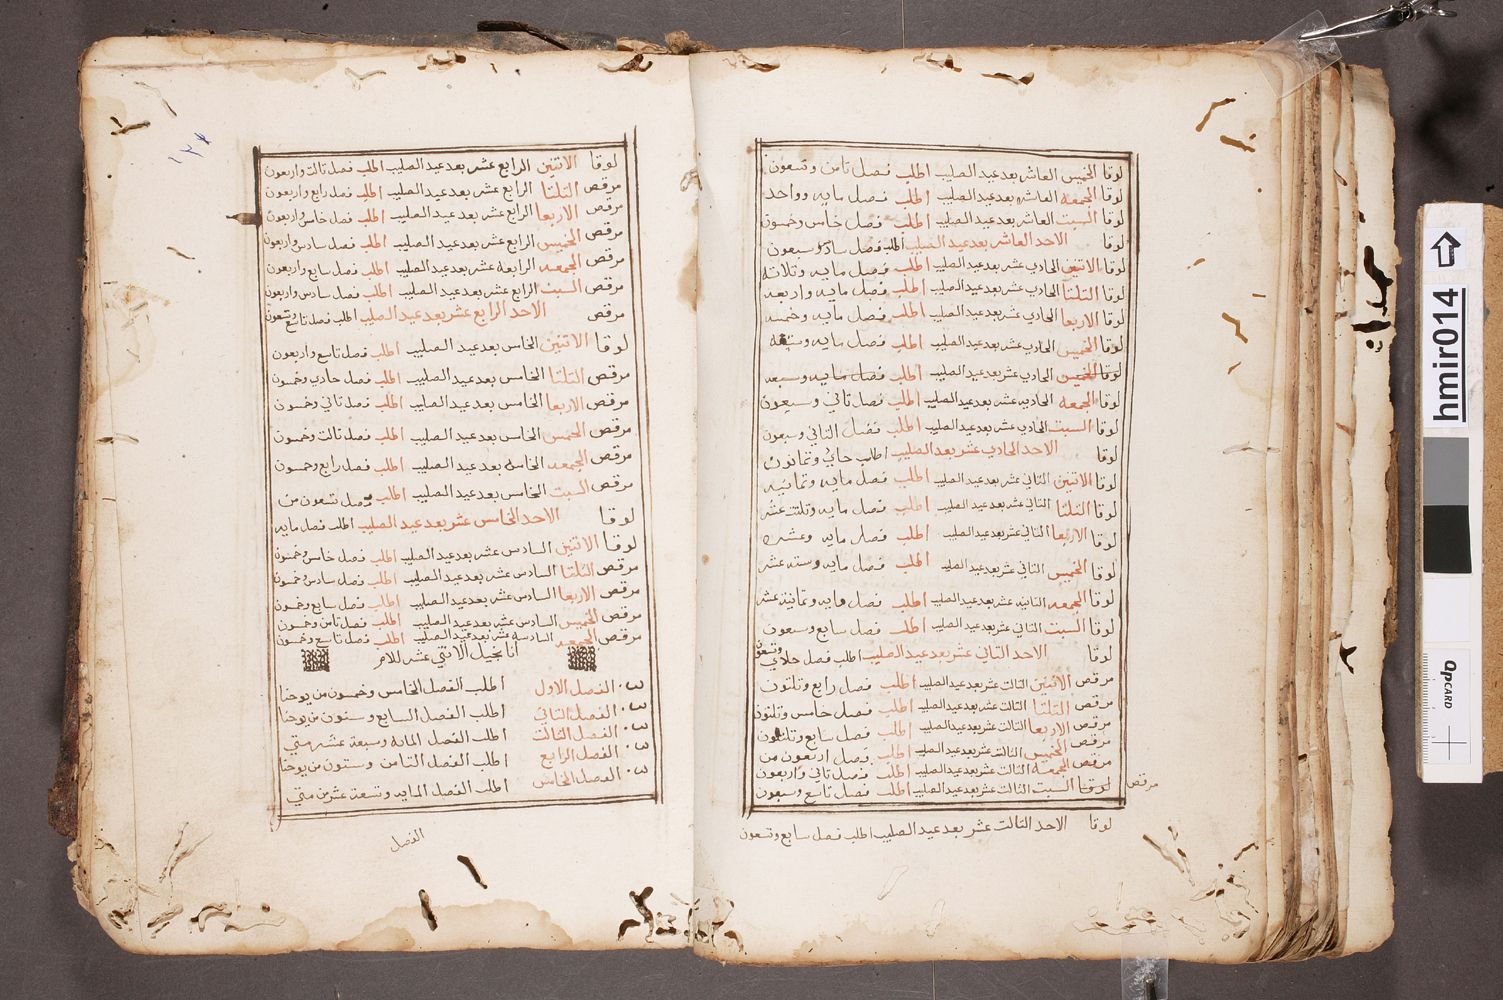 لوقا الخميس العاشر بعد عيد الصليب اطلب فصل ثامن وتسعون
لوقا الجمعه العاشره بعد عيد الصليب اطلب فصل مايه وواحد
لوقا السبت العاشر بعد عيد الصليب اطلب فصل خامس وخمسون
لوقا الاحد العاشر بعد عيد الصليب اطلب فصل سادس وسبعون
لوقا الاثنين الحادي عشر بعد عيد الصليب اطلب فصل مايه وثلاثة
لوقا الثلثا الحادي عشر بعد عيد الصليب اطلب فصل مايه واربعه
لوقا الاربعا الحادي عشر بعد عيد الصليب اطلب فصل مايه وخمسه
لوقا الخميس الحادي عشر بعد عيد الصليب اطلب فصل مايه وسته
لوقا الخميس الحادي عشر بعد عيد الصليب اطلب فصل مايه وسبعه
لوقا الجمعه الحاديه عشر بعد عيد الصليب اطلب فصل ثاني وسبعون
لوقا السبت الحادي عشر بعد عيد الصليب اطلب فصل الثاني وسبعون
لوقا الاحد الحادي عشر بعد الصليب اطلب حادي وثمانون
لوقا الاثنين الثاني عشر بعد عيد الصليب اطلب فصل مايه وثمانيه
لوقا الثلثا الثاني عشر بعد عيد الصليب اطلب فصل مايه وثلثة عشر
لوقا الاربعا الثاني عشر بعد عيد الصليب اطلب فصل مايه وعشره
لوقا الخميس الثاني عشر بعد عيد الصليب اطلب فصل مايه وسته عشر
لوقا الجمعه الثانيه عشر بعد عيد الصليب اطلب فصل مايه وثمانية عشر
لوقا السبت الثاني عشر بعد عيد الصليب اطلب فصل سابع وسبعون
لوقا الاحد الثاني عشر بعد عيد الصليب اطلب فصل حادي وتسعون
مرقص الاثنين الثالث عشر بعد عيد الصليب اطلب فصل رابع وثلثون
مرقص الثلثا الثالث عشر بعد عيد الصليب اطلب فصل خامس وثلثون
مرقص الاربعا الثالث عشر بعد عيد الصليب اطلب فصل سابع وثلثون
مرقص الخميس الثالث عشر بعد عيد الصليب اطلب فصل اربعون من
مرقص الجمعة الثالث عشر بعد عيد الصليب اطلب فصل ثاني واربعون
لوقا السبت الثالث عشر بعد عيد الصليب اطلب فصل تاسع وسبعون
مرقص
لوقا الاحد الثالث عشر بعد عيد الصليب اطلب فصل سابع وتسعون
١٢٤
لوقا الاثنين الرابع عشر بعد عيد الصليب اطلب فصل ثالث واربعون
مرقص الثلثا الرابع عشر بعد عيد الصليب اطلب فصل رابع واربعون
مرقص الاربعا الرابع عشر بعد عيد الصليب اطلب فصل خامس واربعون
مرقص الخميس الرابع عشر بعد عيد الصليب اطلب فصل سادس واربعون
مرقص الجمعه الرابعه عشر بعد عيد الصليب اطلب فصل سابع واربعون
مرقص السبت الرابع عشر بعد عيد الصليب اطلب فصل سادس واربعون
مرقص الاحد الرابع عشر بعد عيد الصليب اطلب فصل تاسع وتسعون
لوقا الاثنين الخامس بعد عيد الصليب اطلب فصل تاسع واربعون
مرقص الثلثا الخامس بعد عيد الصليب اطلب فصل حادي وخمسون
مرقص الاربعا الخامس بعد عيد الصليب اطلب فصل ثاني وخمسون
مرقص الخميس الخامس بعد عيد الصليب اطلب فصل ثالث وخمسون
مرقص الجمعه الخامسة بعد عيد الصليب اطلب فصل رابع وخمسون
مرقص السبت الخامس بعد عيد الصليب اطلب فصل تسعون من
لوقا الاحد الخامس عشر بعد عيد الصليب اطلب فصل مايه
لوقا الاثنين السادس عشر بعد عيد الصليب اطلب فصل خامس وخمسون
مرقص الثلثا السادس عشر بعد عيد الصليب اطلب فصل سادس وخمسون
مرقص الاربعا السادس عشر بعد عيد الصليب اطلب فصل سابع وخمسون
مرقص الخميس السادس عشر بعد عيد الصليب اطلب فصل ثامن وخمسون
مرقص الجمعه السادسة عشر بعد عيد الصليب اطلب فصل تاسع وخمسون
انا نجيل الاثني عشر للام
الفصل الاول اطلب الفصل الخامس وخمسون من يوحنا
الفصل الثاني اطلب الفصل السابع وستون من يوحنا
الفصل الثالث اطلب الفصل المايه وسبعة عشر متي
الفصل الرابع اطلب الفصل الثامن وستون من يوحنا
الفصل الخامس اطلب الفصل المايه وتسعة عشر من متي
الفصل
hmir014
dpCARD